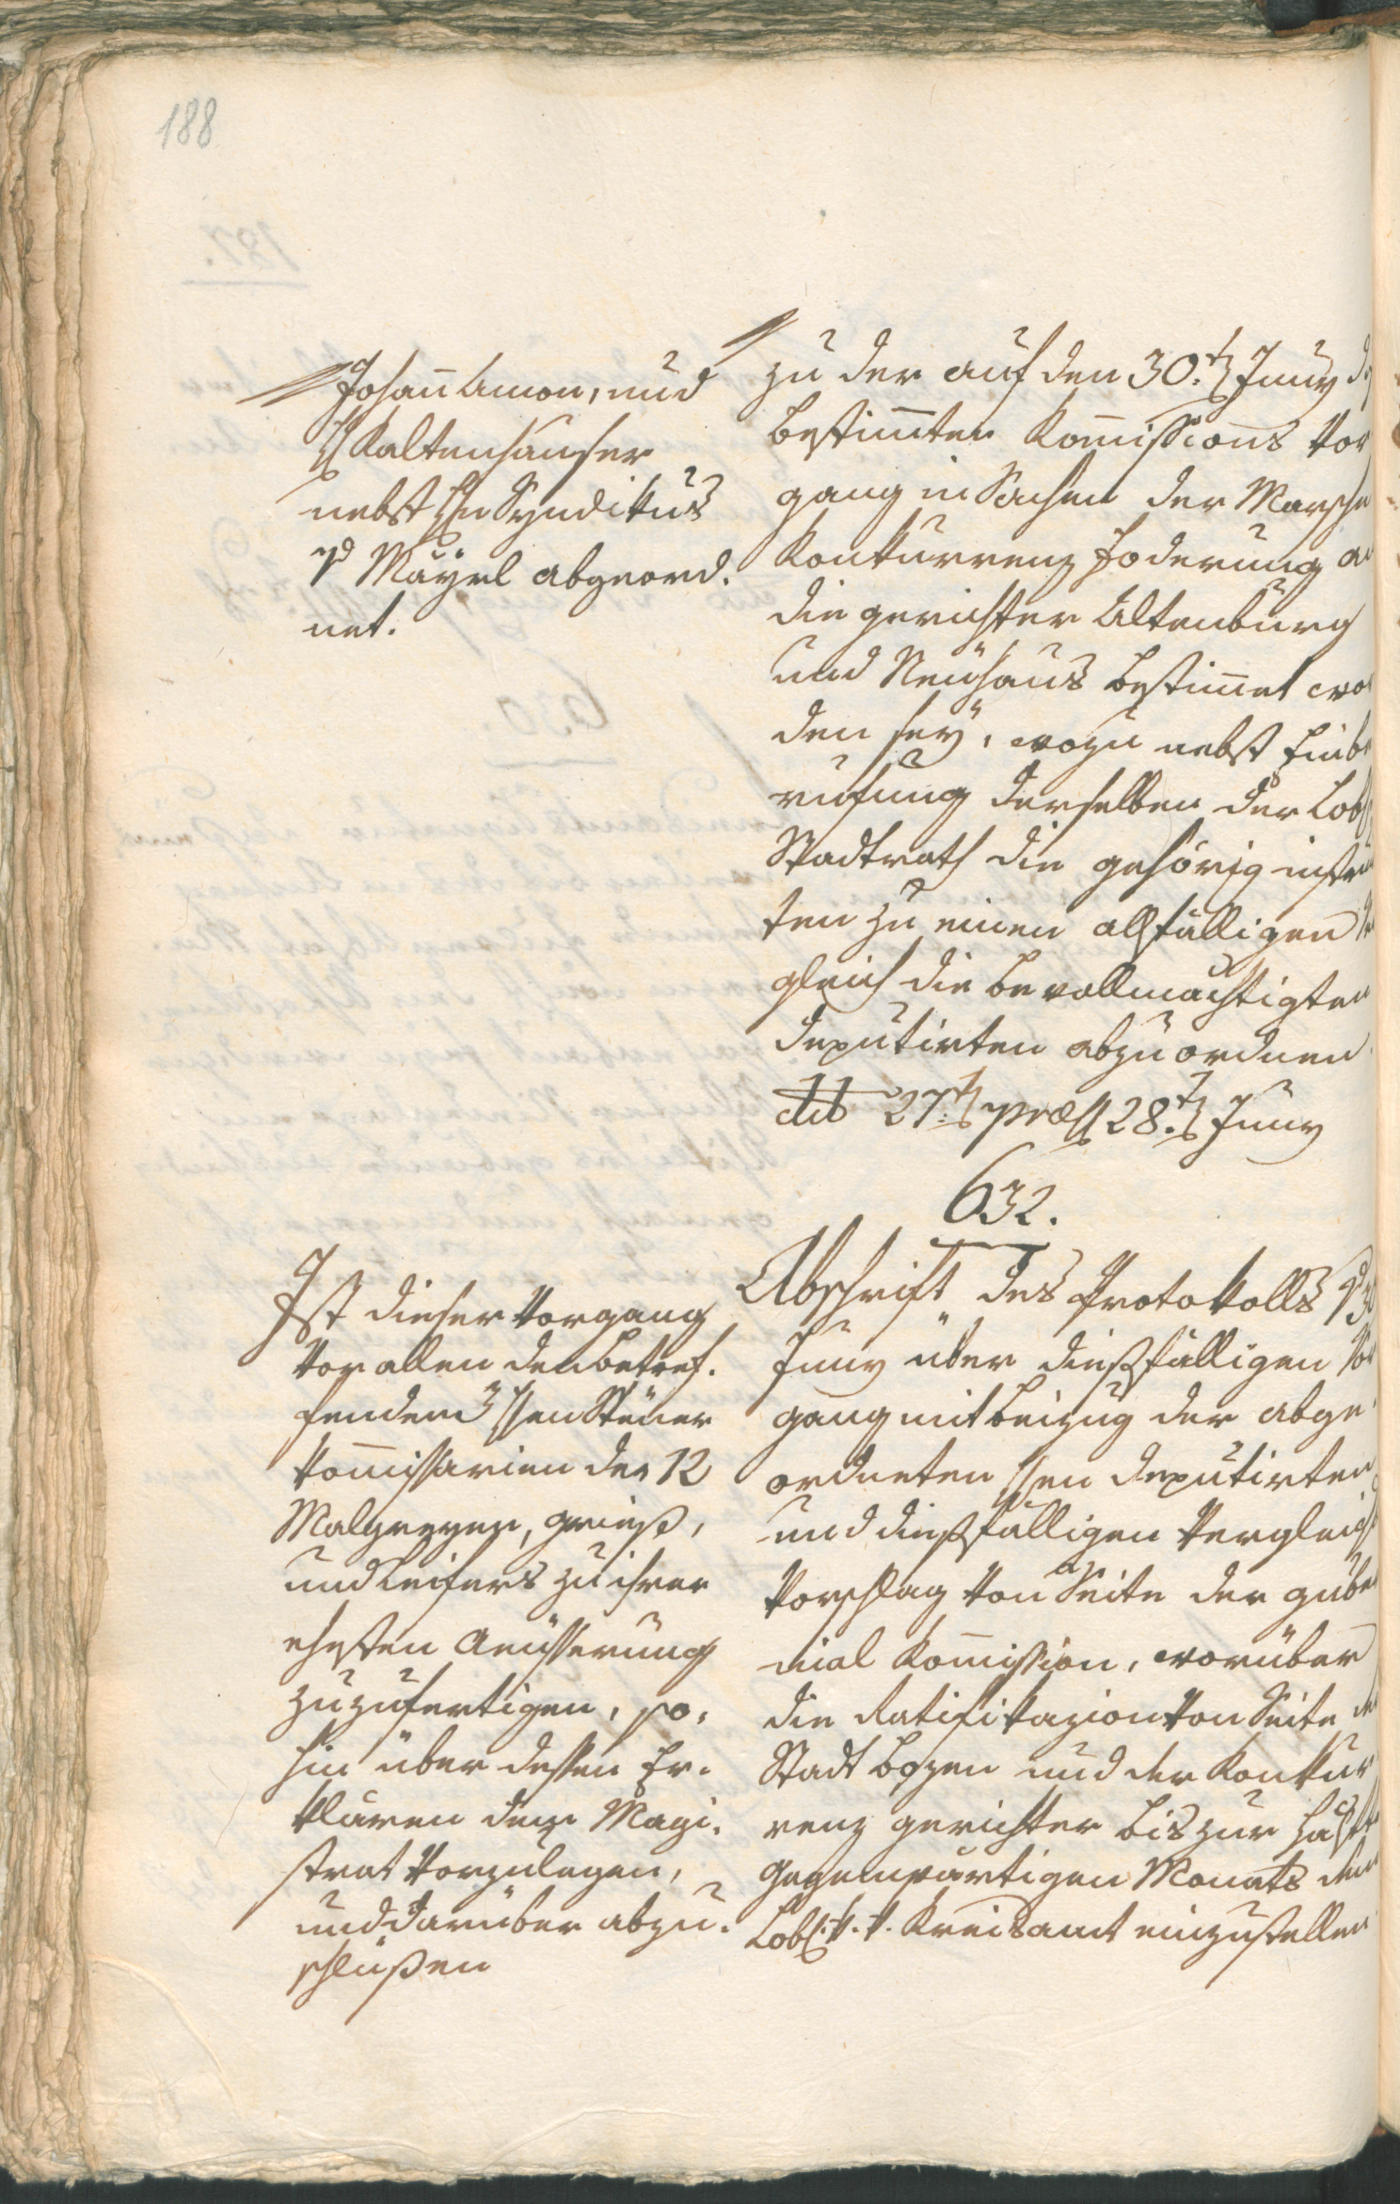 188
Johann Amon, und
H Kaltenhauser
nebst Hn Syndikus
v Mayrl abgeord.
net.
zu der auf den 30.t Juny d
bestimmten Kommissions Vor
gang in Sachen der Marsche
Konkurrenz Foderung a
die gerichter Altenburg
und Neühaus bestimmet wor
den seÿ, wozu nebst Einbe
rufung derselben der Lobl
Stadtrath die gehörig instru
ten zu einen allfälligen
gleich die bevollmächtigten
Deputirten abzuordnen
ddo 27.t præs 28.t Juny
632.
Ist dieser Vorgang
Vor allen den betref.
fenden Hen Steuer
Kommissarien der 12
Malgreyen, grieß,
und Leifers zu ihrer
ehesten Aeusserung
zuzufertigen, so,
hin über dessen Er.
klären dem Magi.
strat Vorzulegen,
und darüber abzu.
schlüßen
Abschrift des Protokolls v 30
Juny über dießfälligen Vor
gang mit beizug der abge
ordneten Hen Deputirten
und dießfälligen Vergleichs
Vorschlag Von Seite der guber
nial Kommission, worüber
die Ratifikazion Von Seite der
Stadt Bozen und der Konkur
renz gerichter bis zur Hälft
gegenwärtigen Monats dem
Lobl. k. k. Kreisamt einzustellen